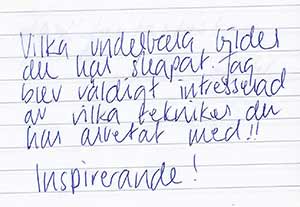 Vilka underbara bilder
du har skapat. Jag
blev väldigt intresserad
av vilka tekniker du
har arbetat med!!
Inspirerande!